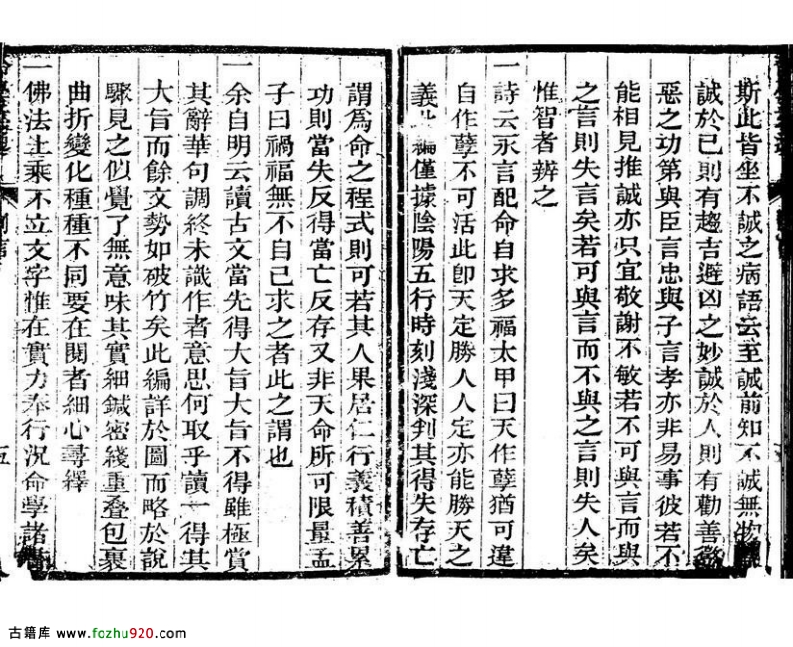 斯此皆坐不誠之病語云至誠前知不誠無物
誠於己則有趨吉避凶之妙誠於人則有勸善
惡之功第與臣言忠與子言孝亦非易事彼若不
能相見推誠亦只宜敬謝不敏若不可與言而與
之言則失言矣若可與言而不與之言則失人矣
惟智者辨之
一詩云永言配命自求多福太甲曰天作孽猶可違
自作孽不可活此卽天定勝人人定亦能勝天之
義此編僅據陰陽五行時刻淺深判其得失存亡
謂爲命之程式則可若其人果居仁行義積善累
功則當失反得當亡反存又非天命所可限量孟
子曰禍福無不自己求之者此之謂也
一余自明云讀古文當先得大旨大旨不得雖極賞
其辭華句調終未識作者意思何取乎讀一得其
大旨而餘文勢如破竹矣此編詳於圖而略於說
驟見之似覺了無意味其實細鍼密綫重疊包裹
曲折變化種種不同要在閱者細心尋繹
一佛法上乘不立文字惟在實力奉行況命學諸書
五
古籍库 www.fozhu920.com